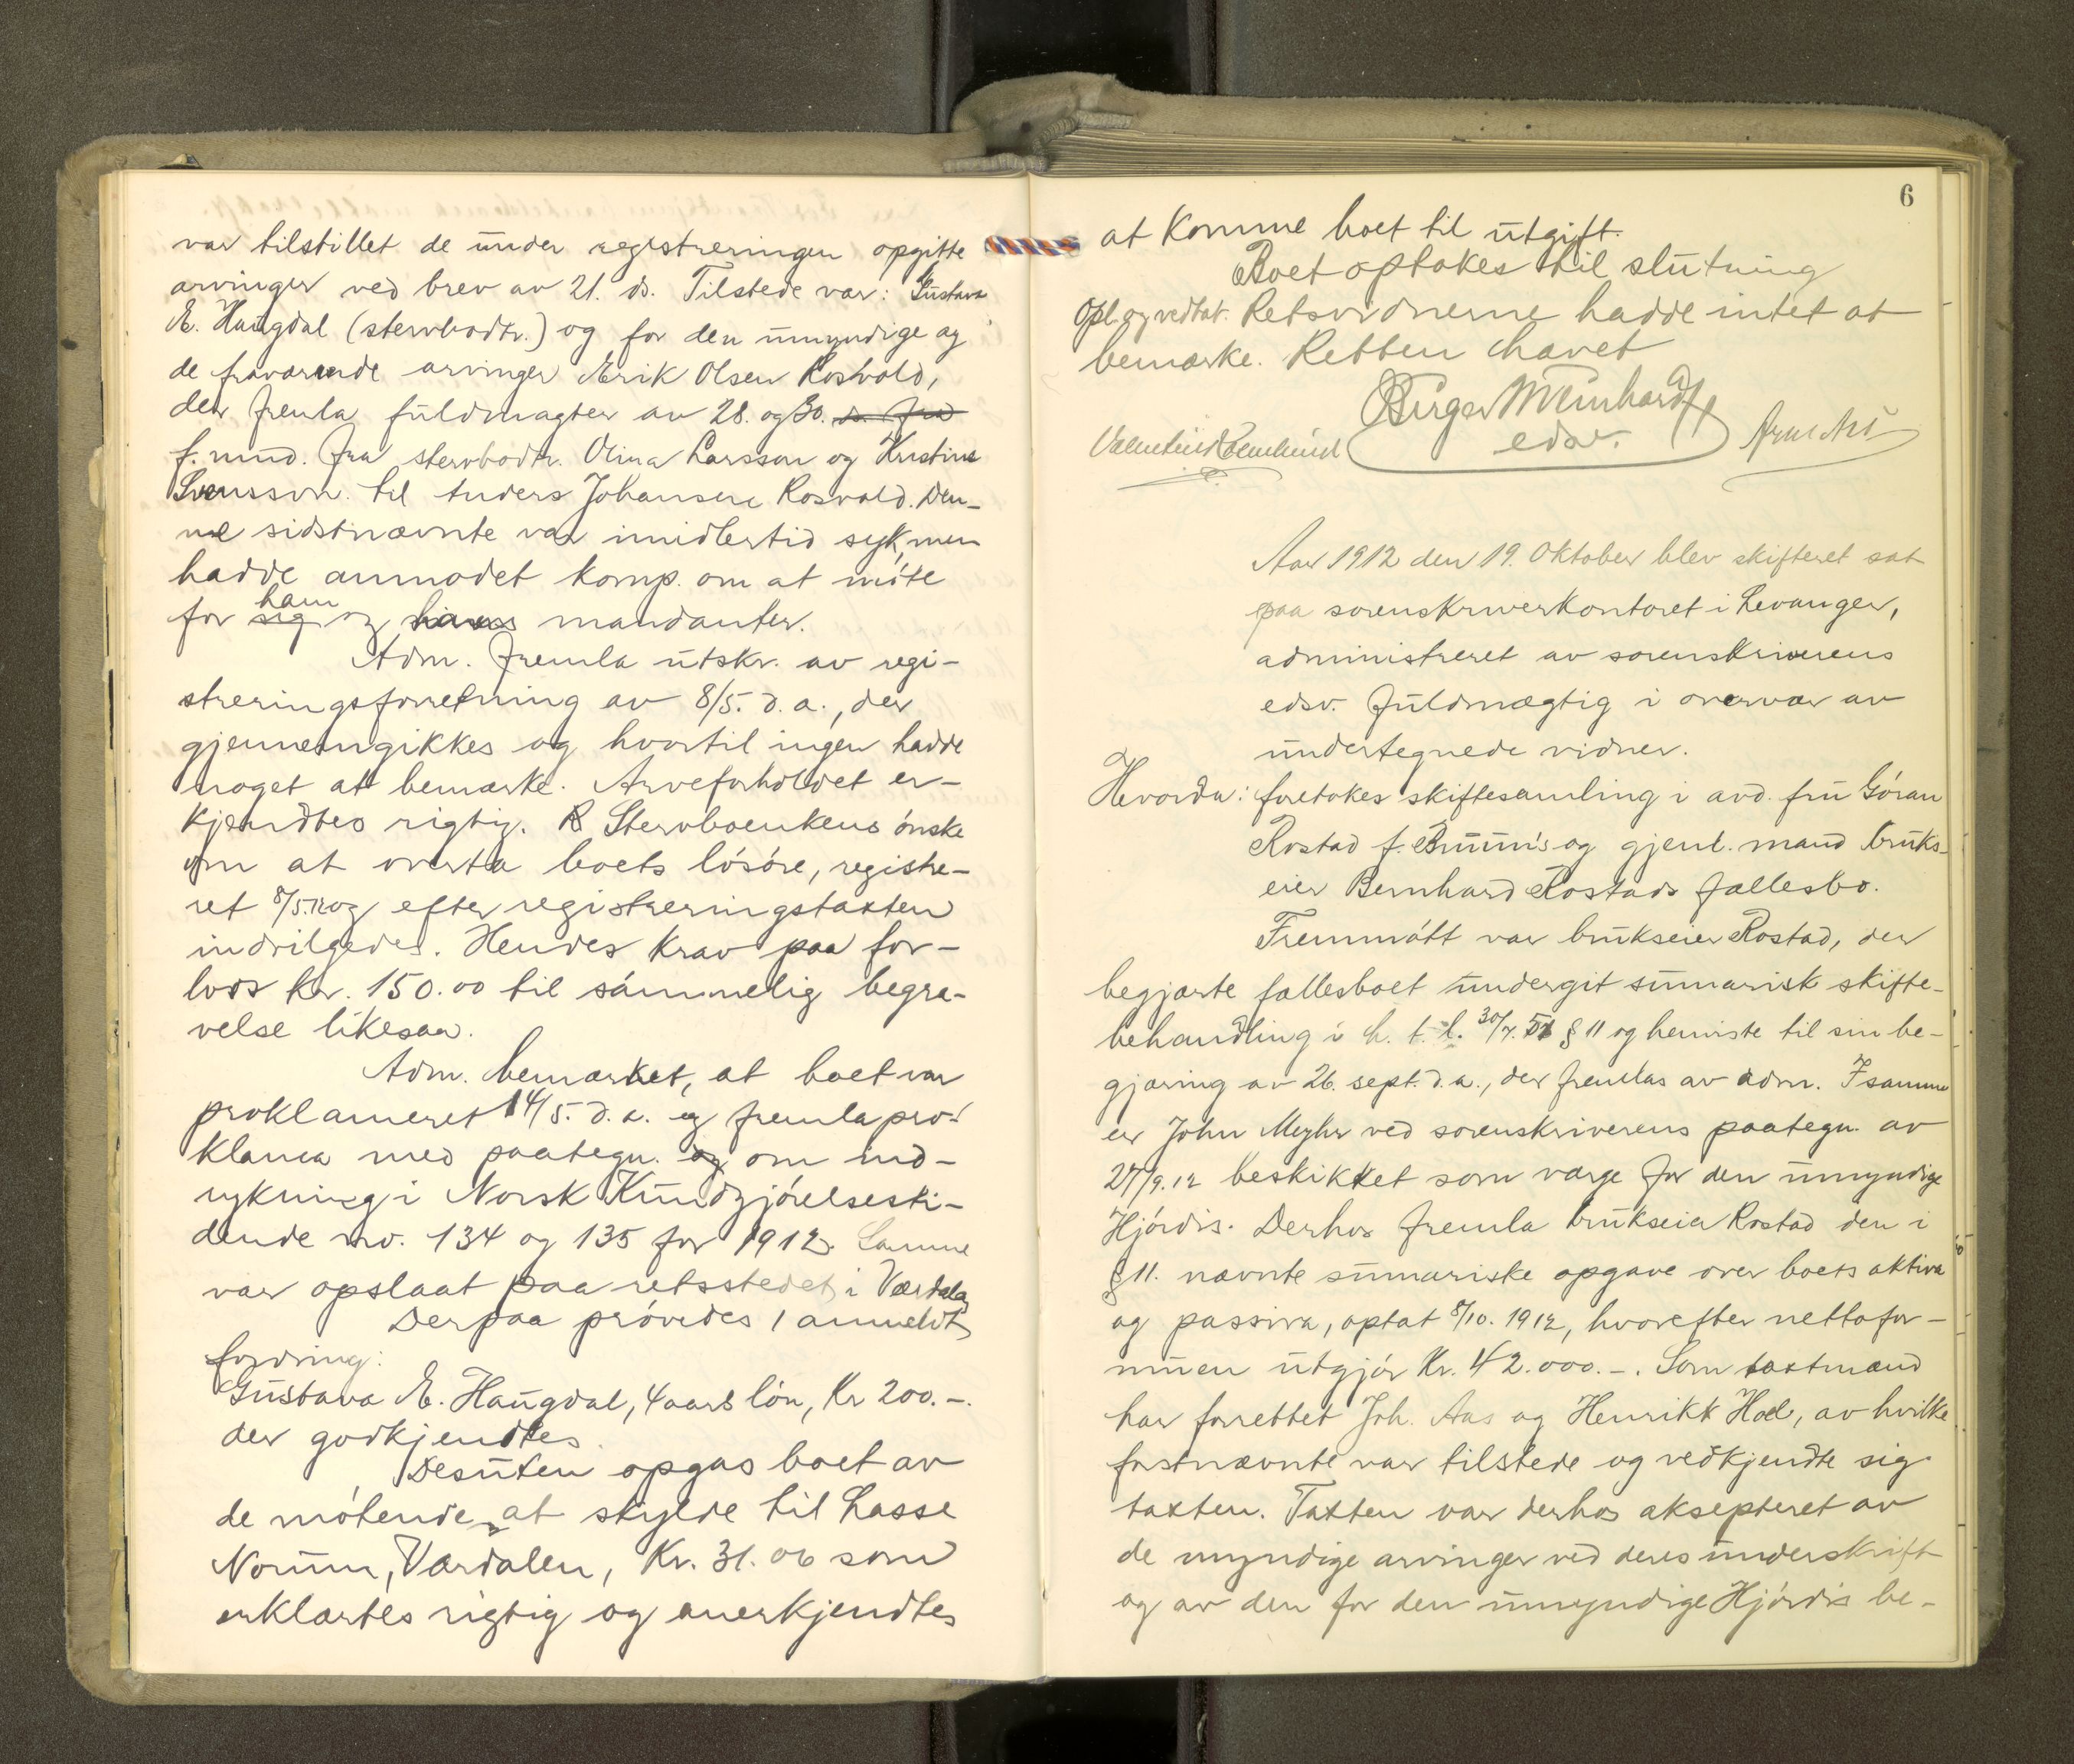 var tilstillet de under registreringen opgitte
arvinger ved brev av 21. ds. Tilstede var: Gustava
E. Haugdal (stervbodtr.) og for den umyndige og
de fraværende arvinger Erik Olsen Rosvold,
der fremla fuldmagter av 28. og 30. ds. fra
f. mnd. fra stervbodtr. Olina Larsson og Kristine
Svensson til Anders Johansen Rosvold. Den-
ne sidstnævnte var imidlertid syk, men
hadde anmodet komp. om at møte
for sig ham og hans mandanter.
Adm. fremla utskr. av regi-
streringsforretning av 8/5. d.a., der
gjennemgikkes og hvortil ingen hadde
noget at bemærke. Arveforholdet er-
kjendtes rigtig. Stervboenkens ønske
om at overta boets løsøre, registre-
ret 8/5.12 og efter registreringstaxten
indvilgedes. Hendes krav paa for-
lods kr. 150.00 til sømmelig begra-
velse likesaa.
Adm. bemærket, at boet var
proklameret 14/5. d.a. og fremla pro-
klama med paategn. og om ind-
rykning i Norsk Kundgjørelsesti-
dende no. 134 og 135 for 1912. Samme
var opslaat paa retsstedet i Værdalen
Derpaa prøvedes 1 anmeldt
fordring:
Gustava E. Haugdal, 4 aars løn, Kr 200.-.
der godkjendtes.
Desuten opgas boet av
de møtende at skylde til Lasse
Norum, Værdalen, Kr. 31.06 som
erklærtes rigtig og anerkjendtes
6
at komme boet til utgift.
Boet optokes til slutning
Opl. og vedtat. Retsvidnerne hadde intet at
bemærke. Retten hævet
Birger Meinhardt
edsv.
Aar 1912 den 19. Oktober blev skifteret sat
paa sorenskriverkontoret i Levanger,
administreret av sorenskriverens
edsv. fuldmægtig i overvær av
undertegnede vidner.
Hvorda: foretokes skiftesamling i avd. fru Gøran
Rostad f. Bruun's og gjenl. mand bruks-
eier Bernhard Rostads fællesbo.
Fremmøtt var brukseier Rostad, der
begjærte fællesboet undergit summarisk skifte-
behandling i h. t. l. 30/7.51 § 11 og henviste til sin be-
gjæring av 26. sept. d.a., der fremlas av adm. I samme
er John Meyhr ved sorenskriverens paategn. av
27/9.12 beskikket som værge for den umyndige
Hjørdis. Derhos fremla brukseier Rostad den i
§ 11. nævnte summariske opgave over boets aktiva
og passiva, optat 8/10. 1912, hvorefter nettofor-
muen utgjør Kr. 42.000.-. Som taxtmænd
har forrettet Joh. Aas og Henrikk Hoel, av hvilke
førstnævnte var tilstede og vedkjendte sig
taxten. Taxten var derhos aksepteret av
de myndige arvinger ved deres underskrift
og av den for den umyndige Hjørdis be-